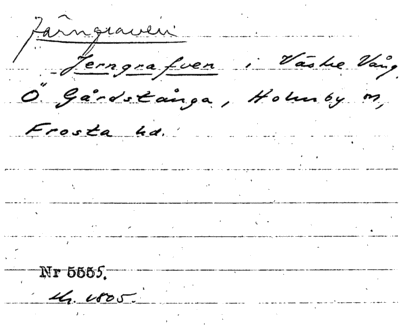 Järngraven
Jerngrafven i Väske Vång,
Ö Gårdstånga, Holmby sn,
Frosta hd.
Nr 5555.
1805.